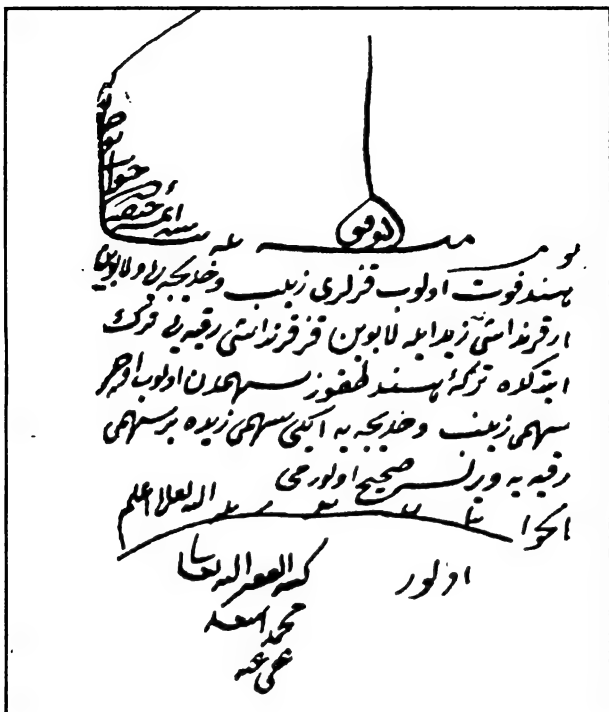 التوفيق
منه
بو مسئله
ائمه حنفیه جواب
هند فوت اولوب قزلری زینب و خدیجه یی و لابوین
ار قرنداشی زید ایله لابوین قز قرنداشی رقیه یی ترک
ایتدکده ترکهٔ هند طقوز سهمدن اولوب اوچر
سهمی زینب و خدیجه یه ایکی سهمی زیده بر سهمی
رقیه یه ویرلسه صحیح اولور می
الجواب الله تعالی اعلم
اولور
کتبه الفقیر الیه تعالی
محمد اسعد
عفی عنه